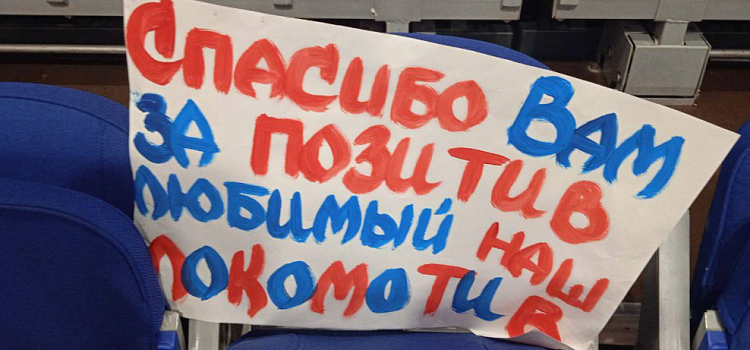 СПАСИБО ВАМ
ЗА ПОЗИТИВ
ЛЮБИМЫЙ НАШ
ЛОКОМОТИВ